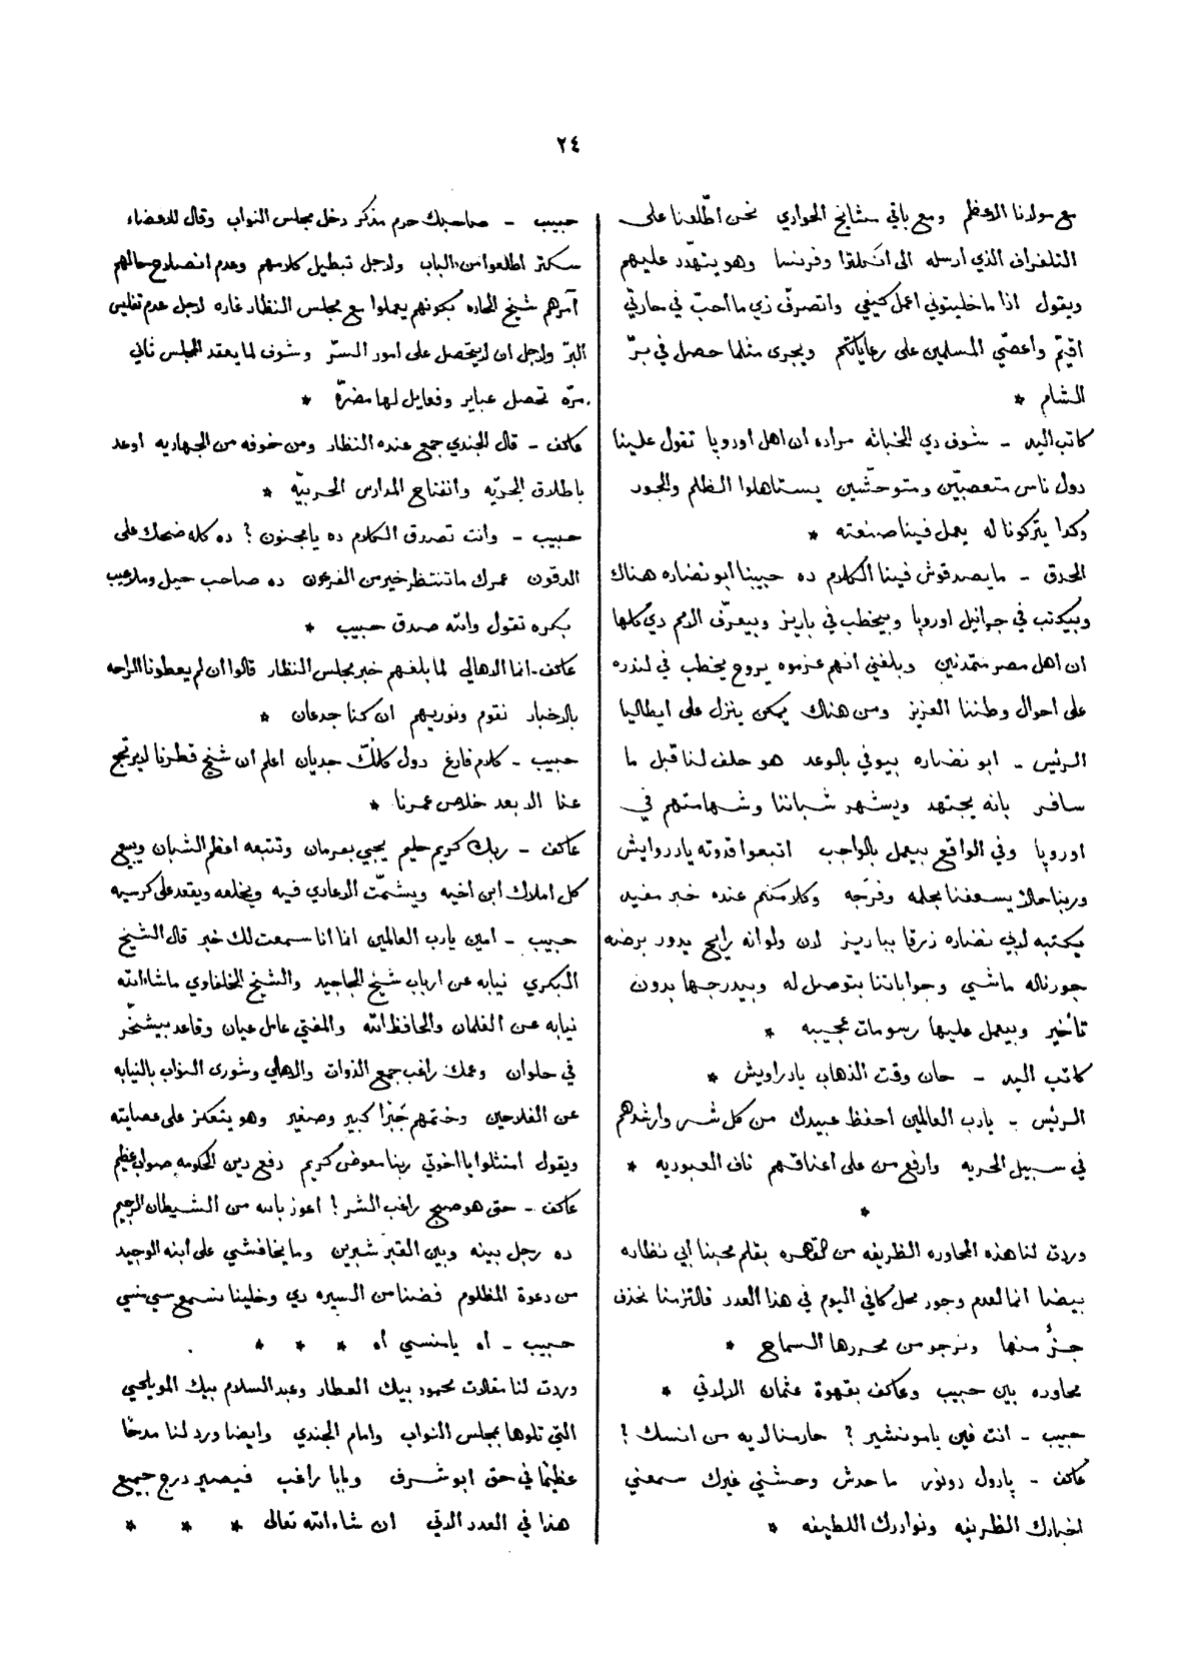 ٢٤
مع مولانا الاعظم ومع باقي مشايخ الحواري نحن اطّلعنا على
التلغراف الذي ارسله الى انكلترا وفرنسا وهو يتهدّد عليهم
ويقول اذا ما خليتوني اعمل كيفي واتصرّف زي ما احبّ في حارتي
اقيّم واعصّي المسلمين على رعاياكم ويجرى مثلما حصل في برّ
الشام *
كاتب اليد - شوف دي الخباثه مراده ان اهل اوروپا تقول علينا
دول ناس متعصبيّن ومتوحّشين يستاهلوا الظلم والجور
وكدا يتركونا له يعمل فينا صنعته *
الحدق - ما يصدقوش فينا الكلام ده حبيبنا ابو نضاره هناك
وبيكتب في جرانيل اوروپا وبيخطب في باريز وبيعرّف الامم دي كلها
ان اهل مصر متمدنين وبلغني انهم عزموه يروح يخطب في لندره
على احوال وطننا العزيز ومن هناك يمكن ينزل على ايطاليا
الرئيس - ابو نضاره بيوفي بالوعد هو حلف لنا قبل ما
سافر بانه يجتهد ويشهر شباننا وشهامتهم في
اوروپا وفي الواقع بيعمل بالواجب اتبعوا قدوته يا دراويش
وربنا حالاً يسعفنا بحلمه وفرَجه وكلا منكم عنده خبر مفيد
يكتبه لابي نضاره زرقا بباريز لان ولو انه رايح يدور برضه
جورناله ماشي وجواباتنا بتوصل له وبيدرجها بدون
تأخير وبيعمل عليها رسومات عجيبه *
كاتب اليد - حان وقت الذهاب يا دراويش *
الرئيس - يا رب العالمين احفظ عبيدك من كل شر وارشدهم
في سبيل الحريه وارفع من على اعناقهم ناف العبوديه *
*
وردت لنا هذه المحاوره الظريفه من القاهره بقلم محبنا ابي نظاره
بيضا انما لعدم وجود محل كافي اليوم في هذا العدد فالتزمنا بحذف
جزءٌ منها ونرجو من محررها السماح *
محاوره بين حبيب وعاكف بقهوة عثمان الالاتي *
حبيب - انت فين يا مونشير ؟ حارمنا ليه من انسك ؟
عاكف - پاردون دونور ما حدش وحشني غيرك سمعني
اخبارك الظريفه ونوادرك اللطيفه *
حبيب - صاحبك حرم مذكر دخل مجلس النواب وقال للاعضاء
سكتر اطلعوا من الباب ولاجل تبطيل كلامهم وعدم انصلاح حالهم
أمرهم شيخ الحاره بكونهم يعملوا مع مجلس النظار غاره لاجل عدم تفليس
البرّ ولاجل ان لا يتحصل على امور السرّ وشوف لما يعقد المجلس ثاني
مرّه تحصل عباير وفعايل لها مضرّة *
عاكف - قال الجندي جمع عنده النظار ومن خوفه من الجهاديه اوعد
باطلاق الحرّيه وانفتاح المدارس الحربيّه *
حبيب - وانت تصدق الكلام ده يا مجنون ؟ ده كله ضحك على
الدقون عمرك ما تنتظر خير من الفرعون ده صاحب حيل وملاعيب
بكره تقول والله صدق حبيب *
عاكف - انما الاهالي لما بلغهم خبر مجلس النظار قالوا ان لم يعطونا الراحه
بالاخبار نقوم ونوريهم ان كنا جدعان *
حبيب - كلام فارغ دول كلّك جديان اعلم ان شيخ قطرنا لايرتجع
عنا الا بعد خلاص عمرنا *
عاكف - ربك كريم حليم يجي بفرمان وتتبعه اعظم الشبان ويبيع
كل املاك ابن اخيه ويشمّت الاعادي فيه ويخلعه ويقعد على كرسيه
حبيب - امين يا رب العالمين انما انا سمعت لك خبر قال الشيخ
البكري نيابه عن ارباب شيخ الجاجيد والشيخ الخلفاوي ماشاء الله
نيابه عن الغلمان والحافظ الله والمفتي عامل عيان وقاعد بيشخّر
في حلوان وعمك راغب جمع الذوات والاهالي وشورى النواب بالنيابه
عن الفلاحين وختمهم جَبْرًا كبير وصغير وهو يتعكز على عصايته
ويقول امتثلوا يا اخوتي ربنا معوض كريم دفع دين الحكومه صواب عظيم
عاكف - حق هو صحيح راغب الشر ! اعوذ بالله من الشيطان الرجيم
ده رجل بينه وبين القبر شبرين وما يخافشي على ابنه الوحيد
من دعوة المظلوم فضنا من السيره دي وخلينا نسمع سي منسي
حبيب - اه يا منسي أه * * *
وردت لنا مقالات محمود بيك العطار وعبد السلام بيك المويلحي
التي تلوها بمجلس النواب وامام الجندي وايضا ورد لنا مدحًا
عظيمًا في حق ابو شرف وبابا راغب فيصير درج جميع
هذا في العدد الاتي ان شاء الله تعالى * * *